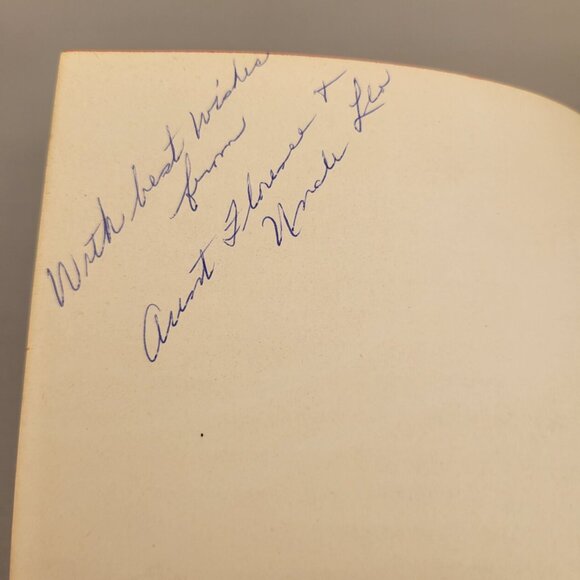 With best wishes
from
Aunt Florence +
Uncle Leo